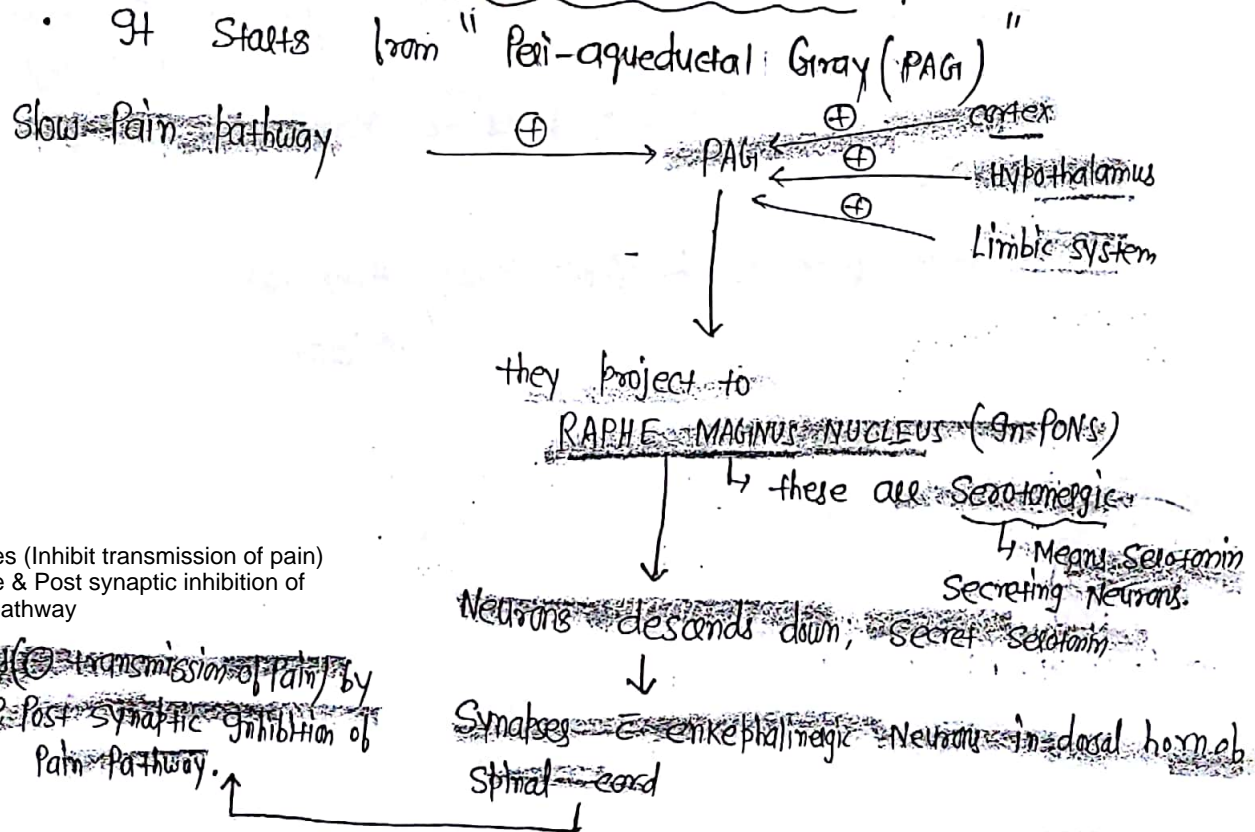 • It Starts from "Peri-aqueductal Gray (PAG)"
Slow Pain pathway ⊕ PAG ⊕ cortex
⊕ Hypothalamus
⊕ Limbic system
they project to
RAPHE MAGINUS NUCLEUS (In PONS)
↳ these all Serotonergic
↳ Means Serotonin
Secreting Neurons.
Neurons descends down, Secret Serotonin
Synapses c̄ enkephalinegic Neurons in dorsal horn of
Spinal cord
es (Inhibit transmission of pain)
e & Post synaptic inhibition of
athway
(⊖ transmission of Pain) by
& Post Synaptic Inhibition of
Pain Pathway.